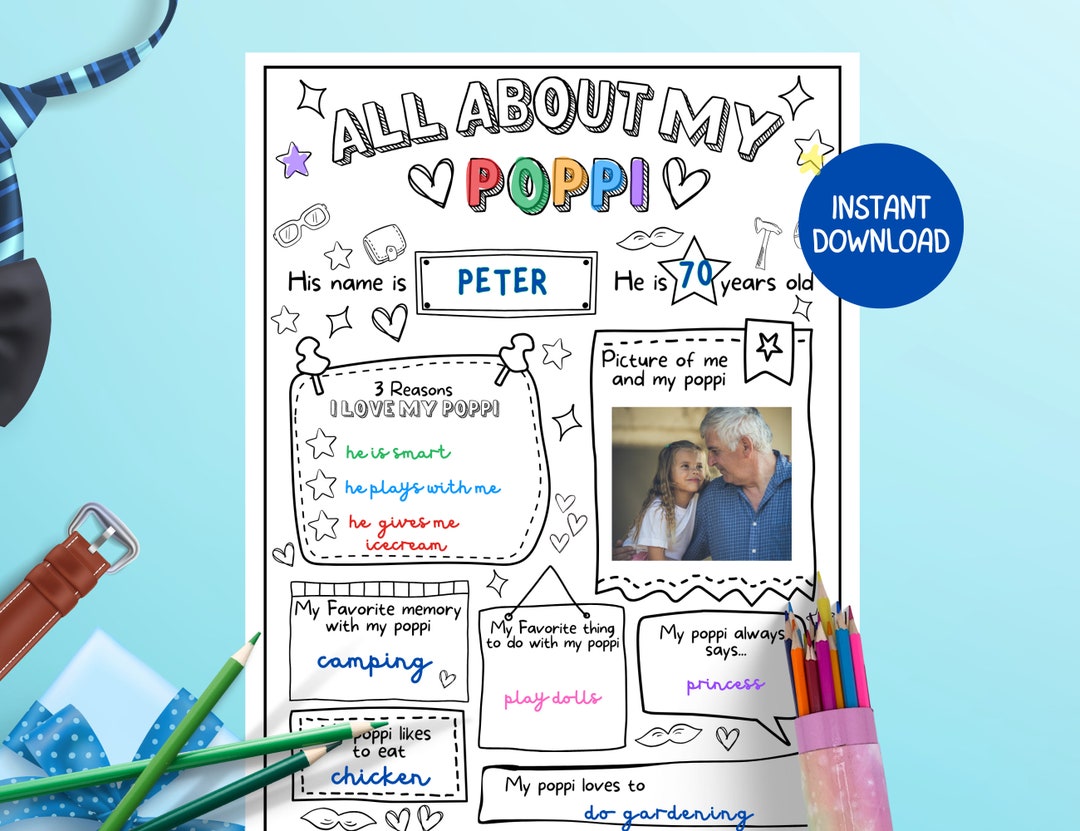 ALL ABOUT MY
POPPI
INSTANT
DOWNLOAD
His name is PETER He is 70 years old
3 Reasons
I LOVE MY POPPI
he is smart
he plays with me
he gives me
icecream
Picture of me
and my poppi
My Favorite memory
with my poppi
camping
My Favorite thing
to do with my poppi
play dolls
My poppi always
says...
princess
poppi likes
to eat
chicken
My poppi loves to
do gardening